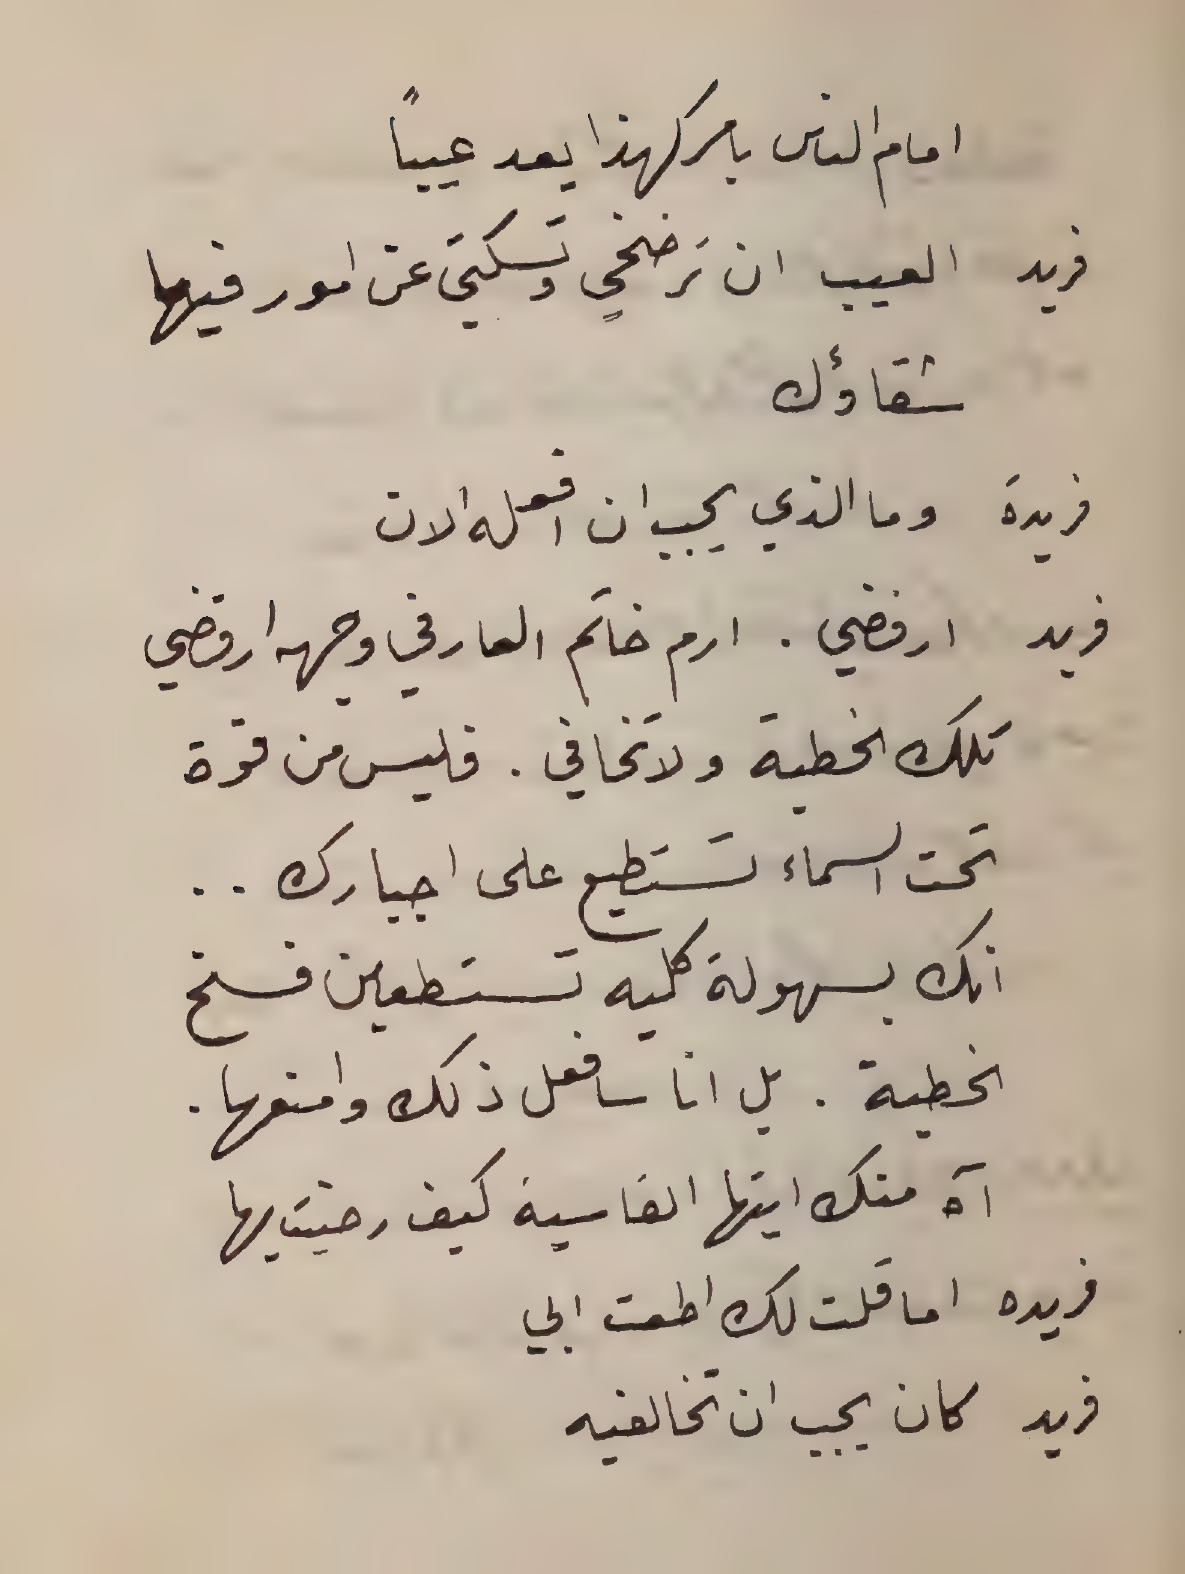 امام الناس بامر كهذا يعد عيباً
فريد العيب ان ترضخي وتسكتي عن امور فيها
شقاؤك
فريدة وما الذي يجب ان افعله الان
فريد ارفضي . ارم خاتم العار في وجهه ارفضي
تلك الخطبة ولا تخافي . فليس من قوة
تحت السماء تستطيع على اجبارك ..
انك بسهولة كليه تستطعين فسخ
الخطبة . بل انا سافعل ذلك وامنعها .
آه منك ايتها القاسية كيف رضيت بها
فريده اما قلت لك اطعت ابي
فريد كان يجب ان تخالفيه